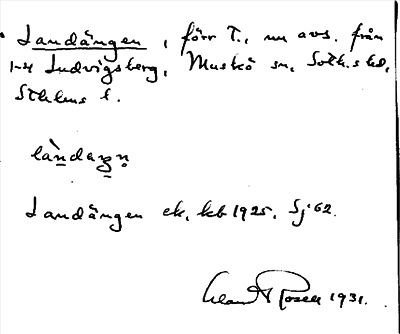 Landängen, förr T., nu avs. från
1-4 Ludvigsberg, Muskö sn, Soth.s hd,
Sthlms l.
Landängen ek. kb 1925. Sj 62.
Rosell 1931.